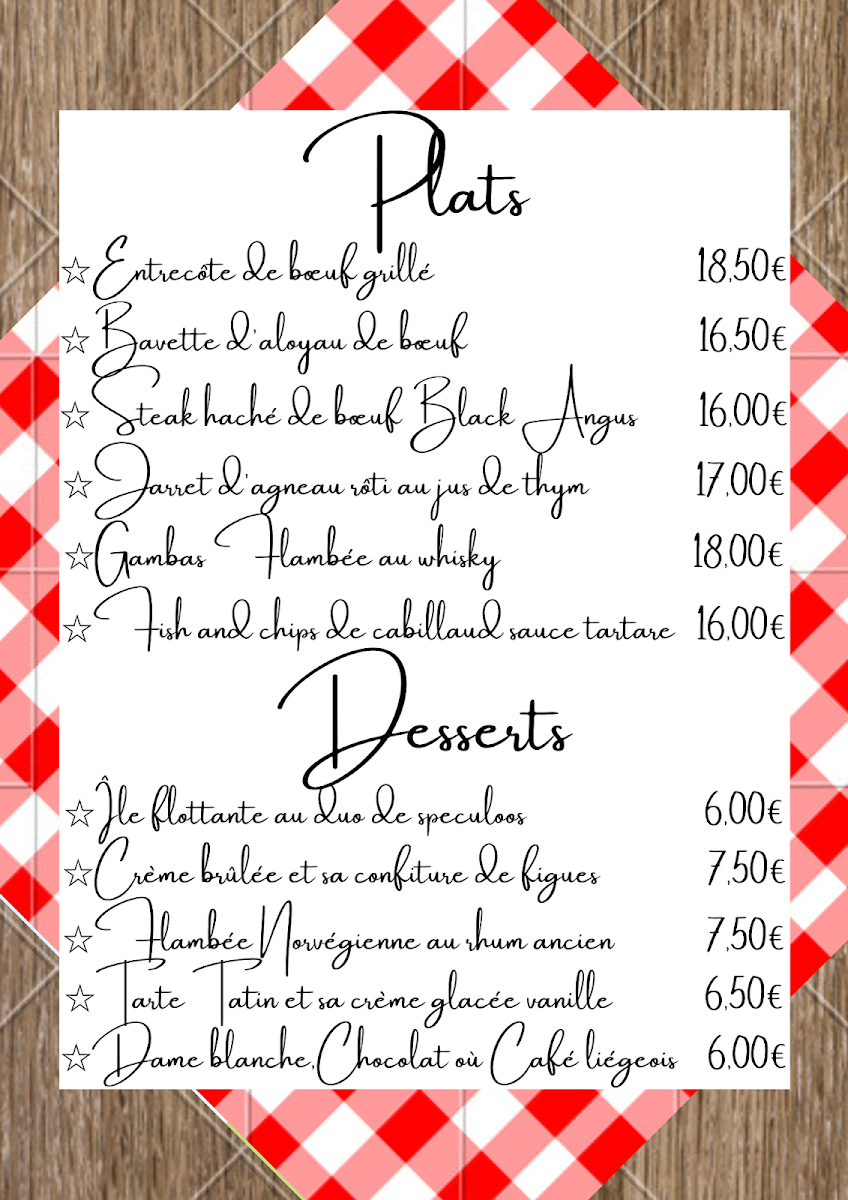 Plats
☆ Entrecôte de bœuf grillé 18,50€
☆ Bavette d'aloyau de bœuf 16,50€
☆ Steak haché de bœuf Black Angus 16,00€
☆ Jarret d'agneau rôti au jus de thym 17,00€
☆ Gambas Flambée au whisky 18,00€
☆ Fish and chips de cabillaud sauce tartare 16,00€
Desserts
☆ Île flottante au duo de speculoos 6,00€
☆ Crème brûlée et sa confiture de figues 7,50€
☆ Flambée Norvégienne au rhum ancien 7,50€
☆ Tarte Tatin et sa crème glacée vanille 6,50€
☆ Dame blanche, Chocolat où Café liégeois 6,00€